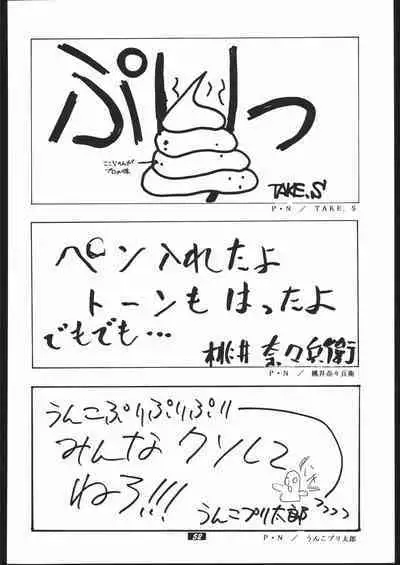 ぷりっ
ここらへんが
プロの味
TAKE.S
P・N / TAKE. S
ペン入れたよ
トーンもはったよ
でもでも…
桃井 奈々兵衛
P・N / 桃井奈々兵衛
うんこぷりぷりぷりり
みんなクソして
ねろ!!!
うんこプリ太郎
58
P・N / うんこプリ太郎